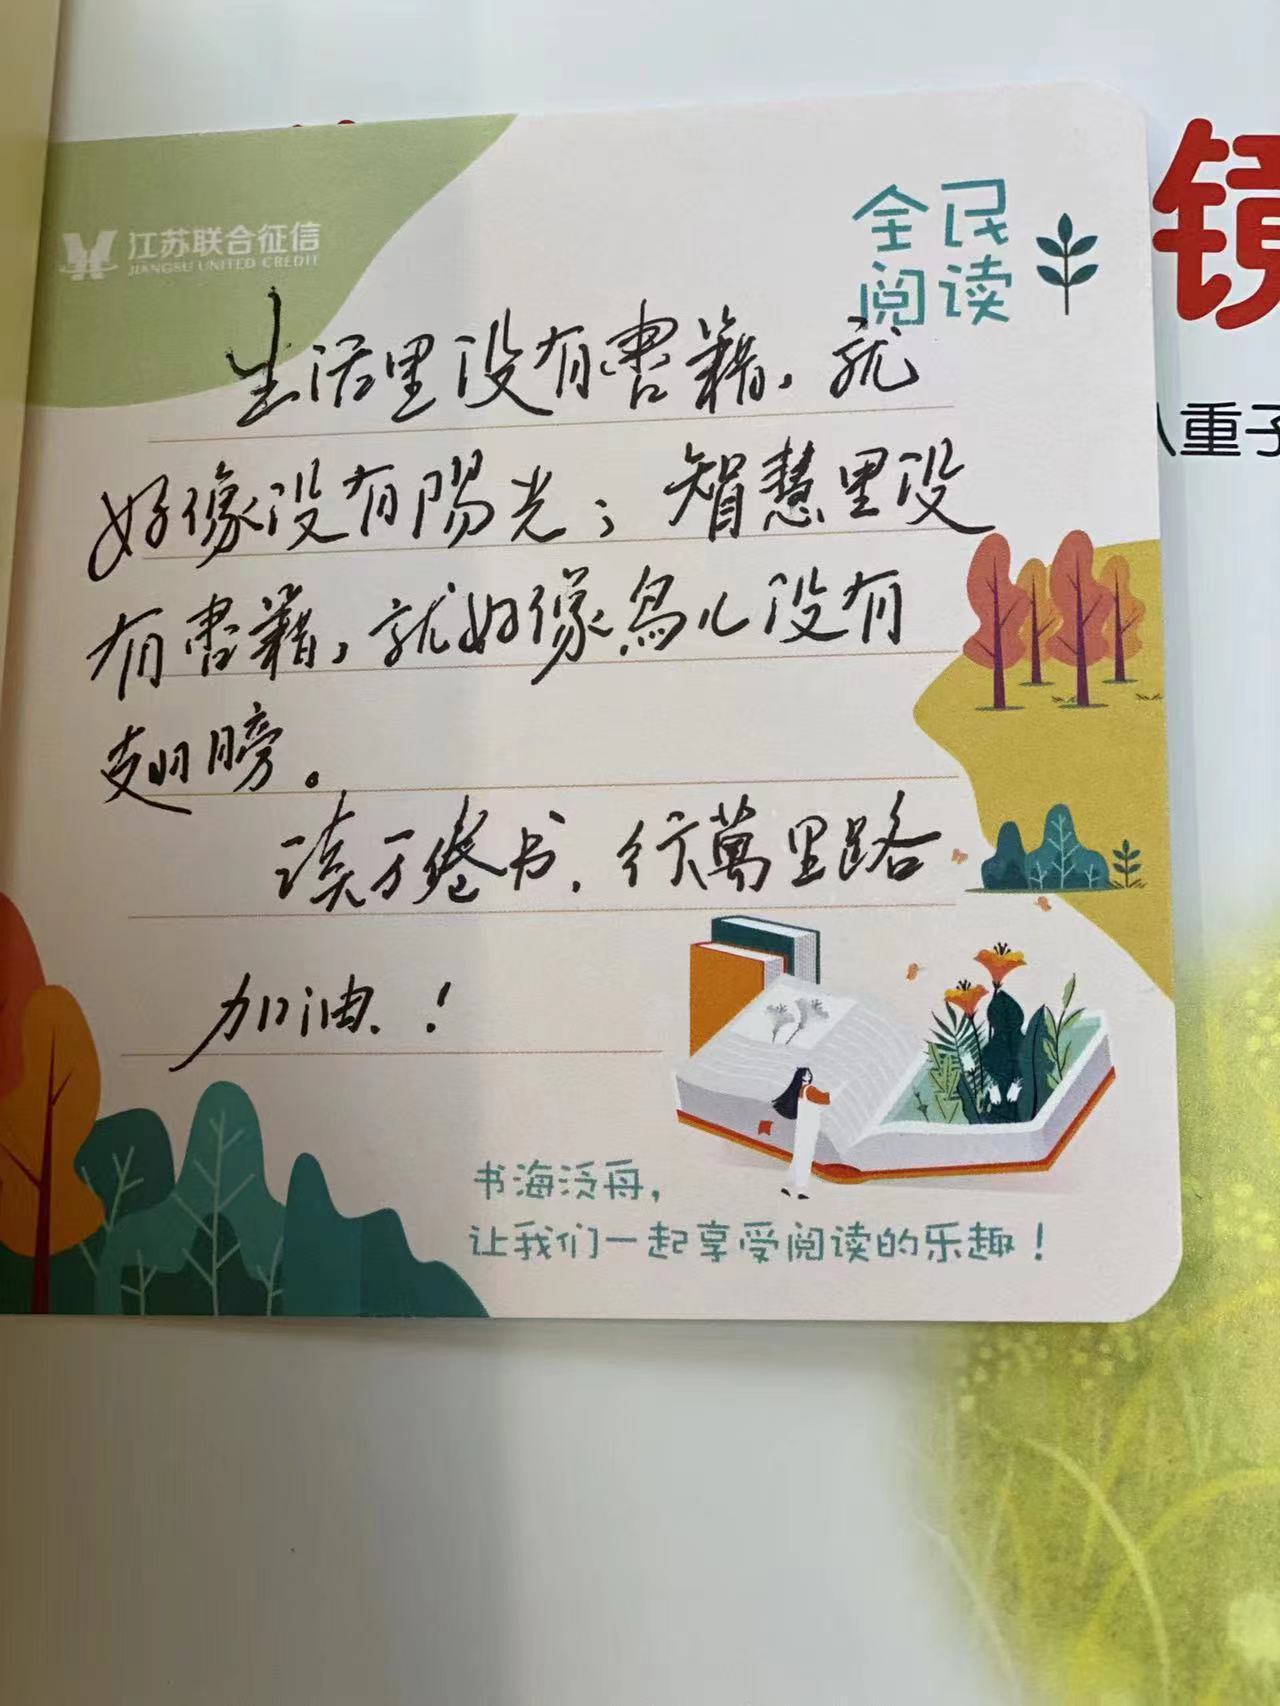 江苏联合征信
JIANGSU UNITED CREDIT
全民
阅读
生活里没有書籍，就
好像没有陽光；智慧里没
有書籍，就好像鸟儿没有
翅膀。
读万卷书，行萬里路
加油！
书海泛舟，
让我们一起享受阅读的乐趣！
镜
八重子